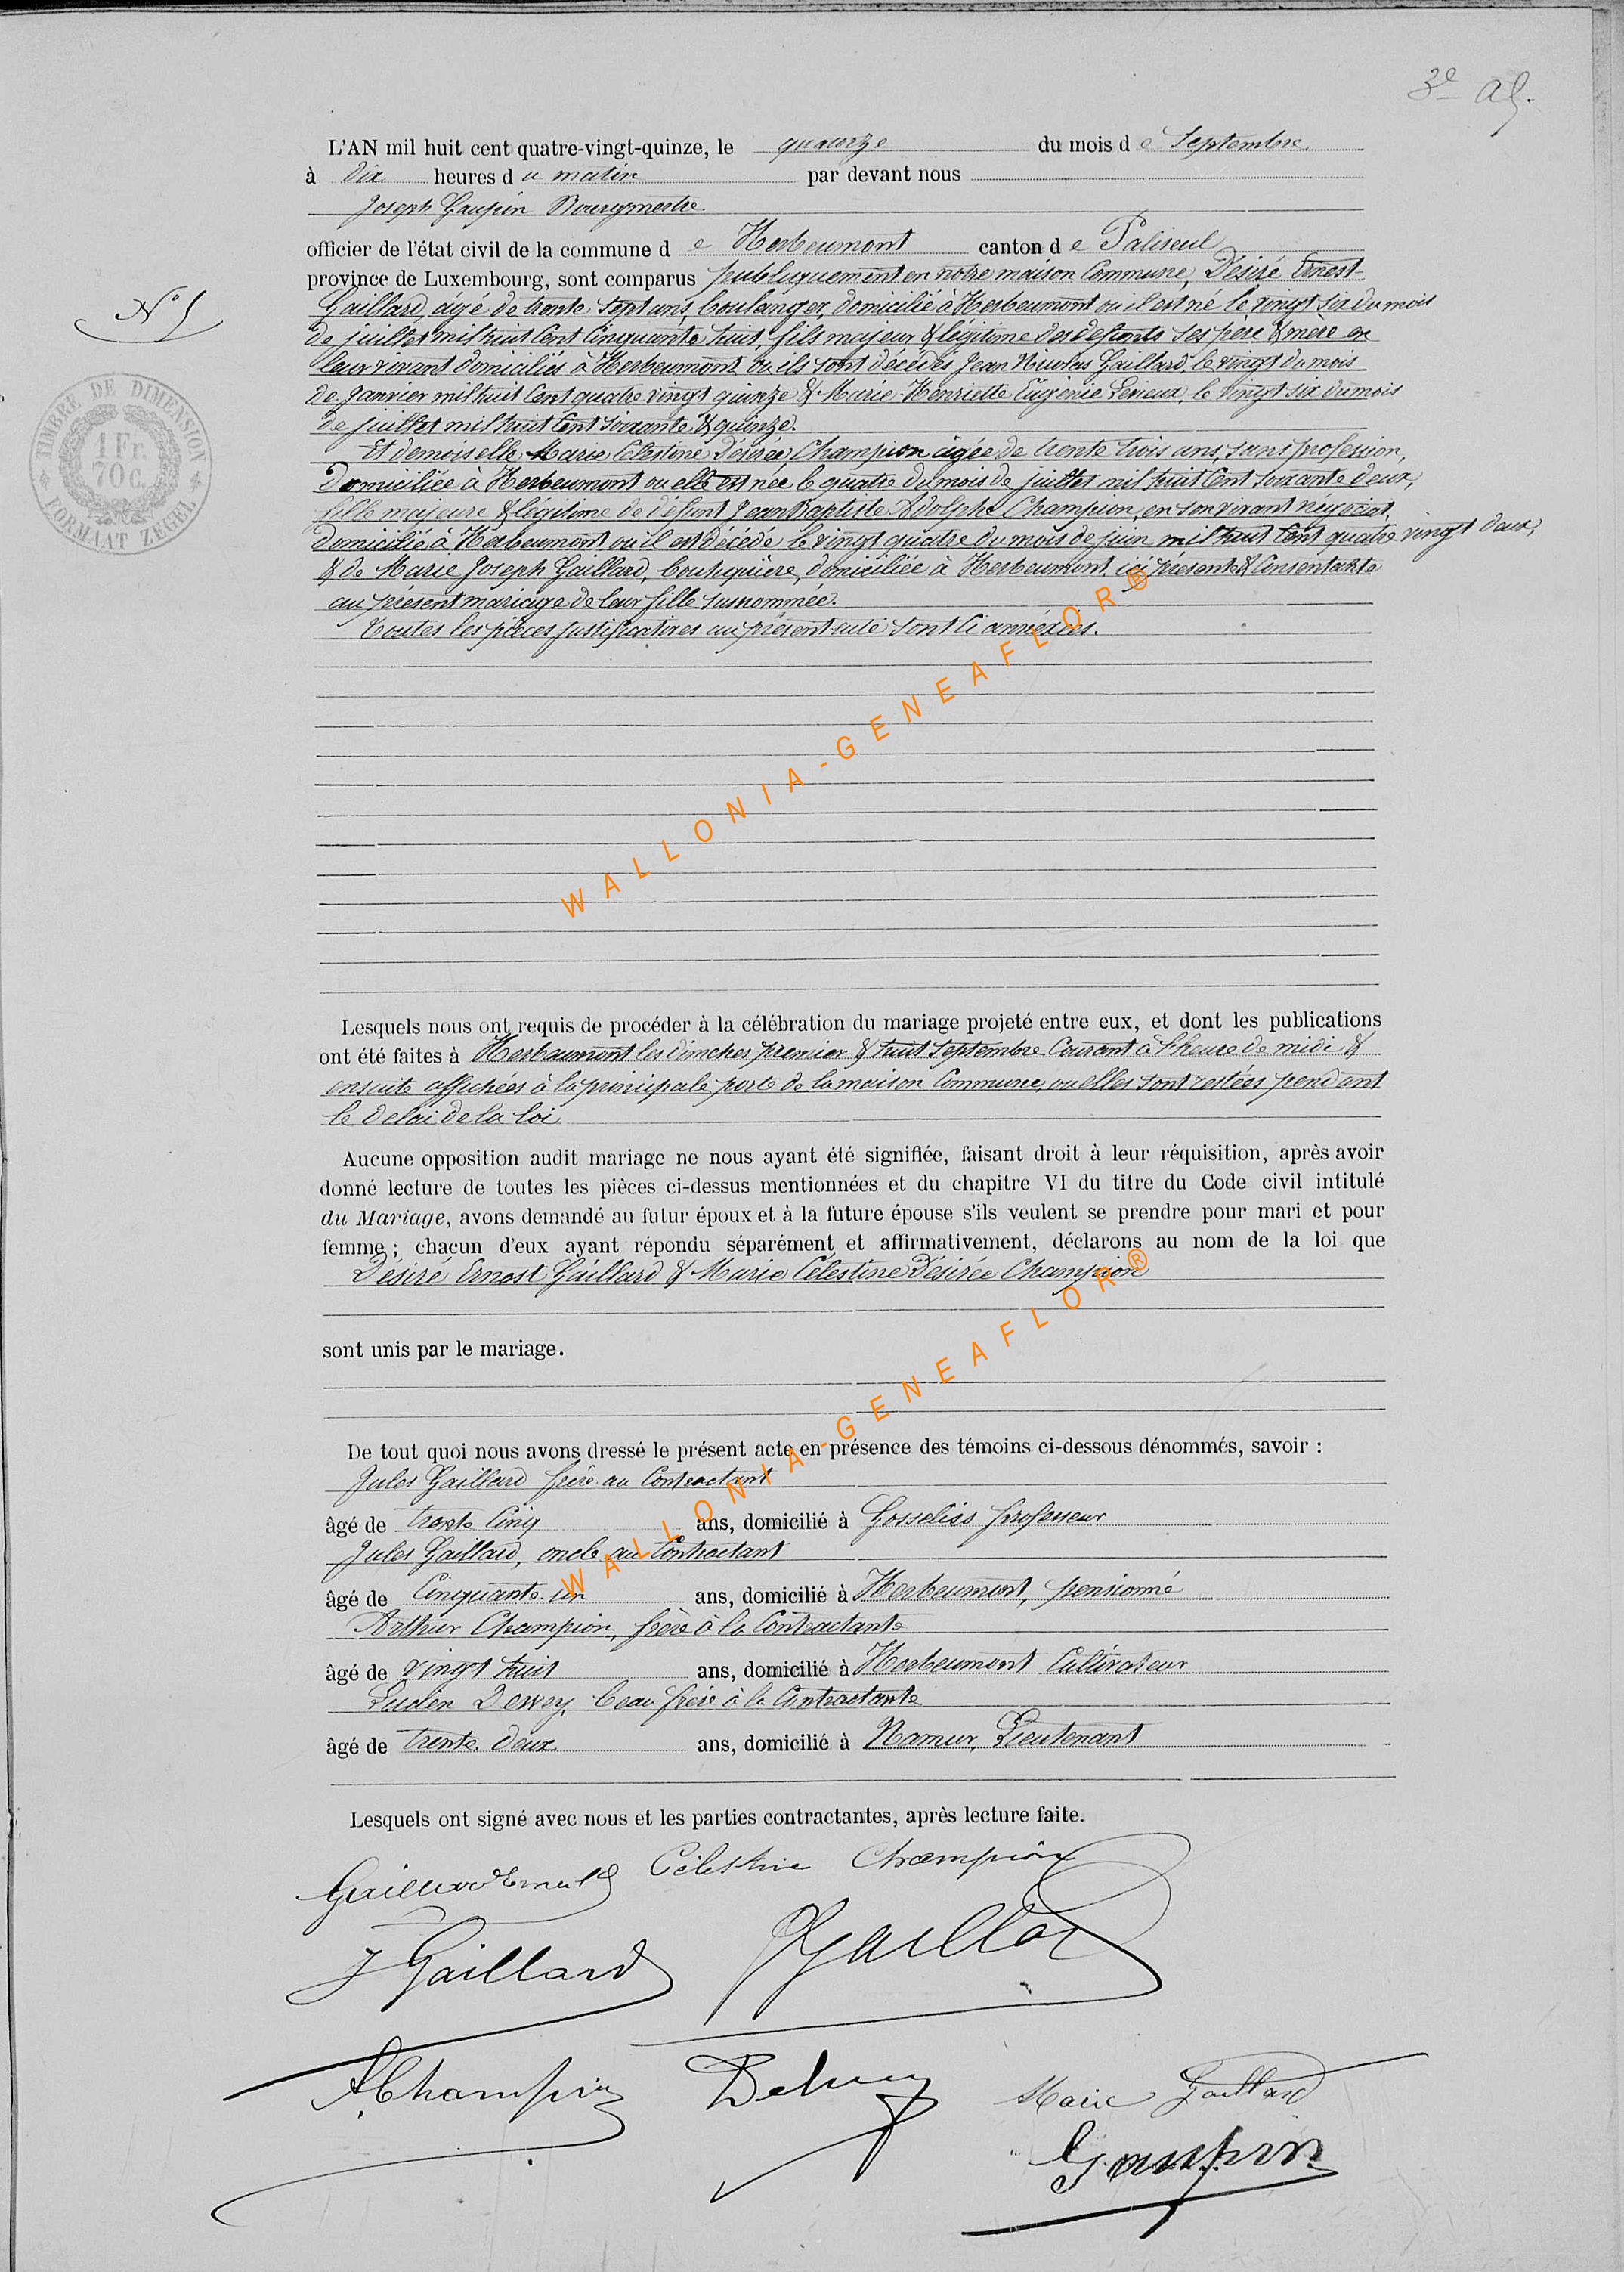 3e
L'AN mil huit cent quatre-vingt-quinze, le quatorze du mois de Septembre
à dix heures du matin par devant nous
Joseph Gaupin Bourgmestre
officier de l'état civil de la commune de Herbeumont canton de Paliseul
province de Luxembourg, sont comparus publiquement en notre maison Commune, Désiré Ernest
Gaillard, âgé de trente sept ans, boulanger, domicilié à Herbeumont ou il est né le vingt six du mois
de juillet mil huit Cent Cinquante huit, fils majeur & légitime des défunts ses père & mère en
leur vivant domiciliés à Herbeumont ou ils sont décédés Jean Nicolas Gaillard, le vingt du mois
de Janvier mil huit Cent quatre vingt quinze & Marie Henriette Eugénie Lérieux, le vingt six du mois
de juillet mil huit Cent soixante & quinze.
Et demoiselle Marie Célestine Désirée Champion âgée de trente trois ans, sans profession,
Domiciliée à Herbeumont ou elle est née le quatre du mois de juillet mil huit Cent soixante deux,
fille majeure & légitime de défunt Jean Baptiste Adolphe Champion, en son vivant négociant,
domicilié à Herbeumont ou il est décédé le vingt quatre du mois de juin mil huit Cent quatre vingt deux,
& de Marie Joseph Gaillard, boutiquière, domiciliée à Herbeumont ici présente & Consentante
au présent mariage de leur fille susnommée.
Toutes les pièces justificatives au présent acte sont ci annexées.
N° 5
TIMBRE DE DIMENSION
1 Fr.
70 C.
FORMAAT ZEGEL
WALLONIA-GENEAFLOR®
Lesquels nous ont requis de procéder à la célébration du mariage projeté entre eux, et dont les publications
ont été faites à Herbeumont les dimches premier & huit Septembre Courant à l'heure de midi &
ensuite affichées à la principale porte de la maison Commune, ou elles sont restées pendant
le delai de la loi
Aucune opposition audit mariage ne nous ayant été signifiée, faisant droit à leur réquisition, après avoir
donné lecture de toutes les pièces ci-dessus mentionnées et du chapitre VI du titre du Code civil intitulé
du Mariage, avons demandé au futur époux et à la future épouse s'ils veulent se prendre pour mari et pour
femme ; chacun d'eux ayant répondu séparément et affirmativement, déclarons au nom de la loi que
Désiré Ernest Gaillard & Marie Célestine Désirée Champion
sont unis par le mariage.
WALLONIA-GENEAFLOR®
De tout quoi nous avons dressé le présent acte en présence des témoins ci-dessous dénommés, savoir :
Jules Gaillard frère au Contractant
âgé de trente Cinq ans, domicilié à Gosselies professeur
Jules Gaillard, oncle au Contractant
âgé de Cinquante un ans, domicilié à Herbeumont, pensionné
Arthur Champion, frère à la Contractante
âgé de vingt huit ans, domicilié à Herbeumont Cultivateur
beau frère à la Contractante
âgé de trente deux ans, domicilié à Namur, Lieutenant
Lesquels ont signé avec nous et les parties contractantes, après lecture faite.
Gaillard Ernest Célestine Champion
J Gaillard JGaillard
AChampion Marie Gaillard
Gaupin